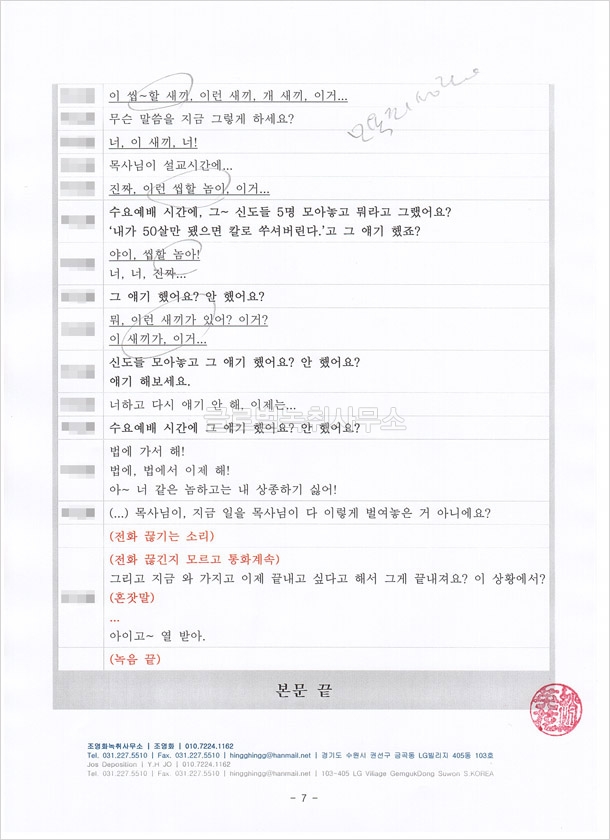 이 씹~할 새끼, 이런 새끼, 개 새끼, 이거...
무슨 말씀을 지금 그렇게 하세요?
너, 이 새끼, 너!
목사님이 설교시간에...
진짜, 이런 씹할 놈이, 이거...
수요예배 시간에, 그~ 신도들 5명 모아놓고 뭐라고 그랬어요?
‘내가 50살만 됐으면 칼로 쑤셔버린다.’고 그 얘기 했죠?
야이, 씹할 놈아!
너, 너, 진짜...
그 얘기 했어요? 안 했어요?
뭐, 이런 새끼가 있어? 이거?
이 새끼가, 이거...
신도들 모아놓고 그 얘기 했어요? 안 했어요?
얘기 해보세요.
너하고 다시 얘기 안 해, 이제는...
글로벌녹취사무소
수요예배 시간에 그 얘기 했어요? 안 했어요?
법에 가서 해!
법에, 법에서 이제 해!
아~ 너 같은 놈하고는 내 상종하기 싫어!
(...) 목사님이, 지금 일을 목사님이 다 이렇게 벌여놓은 거 아니에요?
(전화 끊기는 소리)
(전화 끊긴지 모르고 통화계속)
그리고 지금 와 가지고 이제 끝내고 싶다고 해서 그게 끝내져요? 이 상황에서?
(혼잣말)
...
아이고~ 열 받아.
(녹음 끝)
본문 끝
조영화녹취사무소 | 조영화 | 010.7224.1162
Tel. 031.227.5510 | Fax. 031.227.5510 | hingghingg@hanmail.net | 경기도 수원시 권선구 금곡동 LG빌리지 405동 103호
Jos Deposition | Y.H JO | 010.7224.1162
Tel. 031.227.5510 | Fax. 031.227.5510 | hingghingg@hanmail.net | 103-405 LG Village GemgukDong Suwon S.KOREA
- 7 -